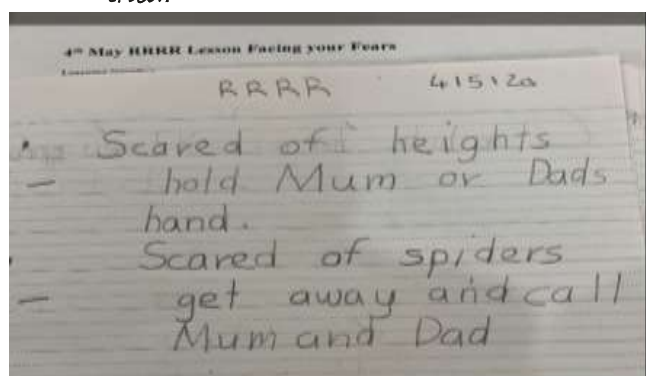 4th May RRRR Lesson Facing your Fears
RRRR 4\5\20
Scared of heights
- hold Mum or Dads
hand.
Scared of spiders
- get away and call
Mum and Dad